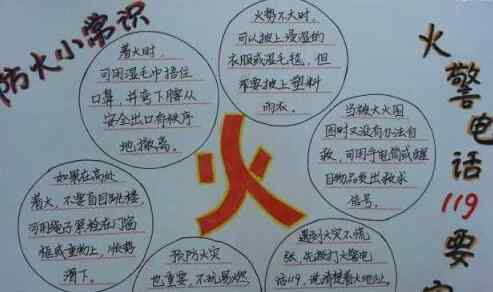 防火小常识
着火时，
可用湿毛巾捂住
口鼻，并弯下腰从
安全出口有秩序
地撤离。
火势不大时，
可以披上浸湿的
衣服或湿毛毯，但
不要披上塑料
雨衣。
当被大火围
困时又没有办法自
救，可用手电筒或醒
目物品发出求救
信号。
如果在高处
着火，不要盲目跳楼，
可用绳子紧栓在门窗
框或重物上，顺势
滑下。
火
预防火灾
也重要，不玩易燃
遇到火灾不慌
张，先拨打火警电
话119，说清楚着火地址。
火警电话119要